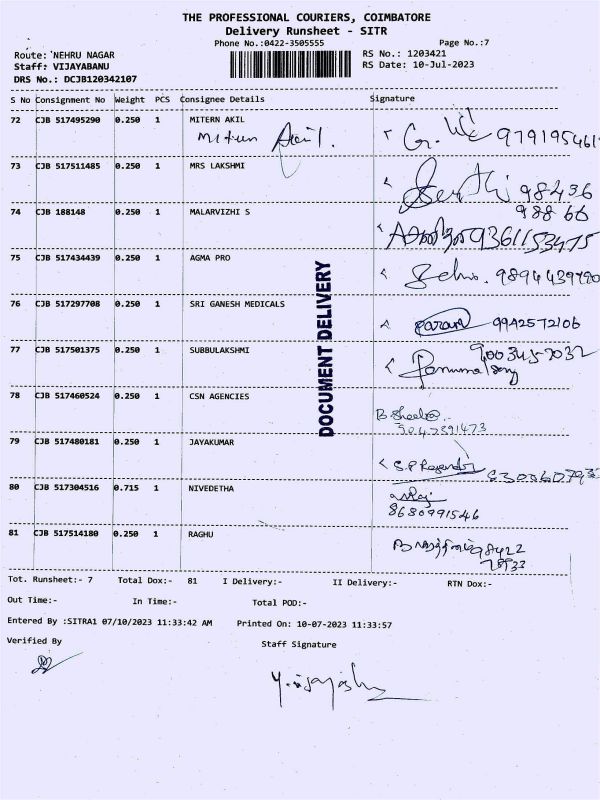 THE PROFESSIONAL COURIERS, COIMBATORE
Delivery Runsheet - SITR
Phone No.:0422-3505555 Page No.:7
Route: NEHRU NAGAR RS No.: 1203421
Staff: VIJAYABANU RS Date: 10-Jul-2023
DRS No.: DCJB120342107
S No Consignment No Weight PCS Consignee Details Signature
72 CJB 517495290 0.250 1 MITERN AKIL
Mitern Akil. G. 979195461
73 CJB 517511485 0.250 1 MRS LAKSHMI
98436
98866
74 CJB 188148 0.250 1 MALARVIZHI S
9361153475
75 CJB 517434439 0.250 1 AGMA PRO
9894439790
76 CJB 517297708 0.250 1 SRI GANESH MEDICALS
9942572106
77 CJB 517501375 0.250 1 SUBBULAKSHMI
78 CJB 517460524 0.250 1 CSN AGENCIES
B. Sheeba
9047391473
79 CJB 517480181 0.250 1 JAYAKUMAR
S.P Rajendri
80 CJB 517304516 0.715 1 NIVEDETHA
8680991546
81 CJB 517514180 0.250 1 RAGHU
98422
78933
DOCUMENT DELIVERY
Tot. Runsheet:- 7 Total Dox:- 81 I Delivery:- II Delivery:- RTN Dox:-
Out Time:- In Time:- Total POD:-
Entered By :SITRA1 07/10/2023 11:33:42 AM Printed On: 10-07-2023 11:33:57
Verified By Staff Signature